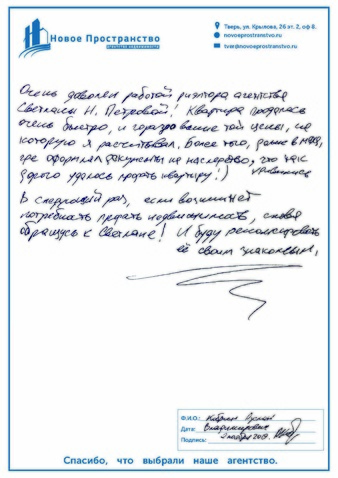 Новое Пространство
агентство недвижимости
Тверь, ул. Крылова, 26 эт. 2, оф 8.
novoeprostranstvo.ru
tver@novoeprostranstvo.ru
Очень доволен работой риэлтора агентства
Светланы Н. Петровой! Квартира продалась
очень быстро, и гораздо выше той цены, на
которую я рассчитывал. Более того, даже в МФЦ,
где оформлял документы на наследство,
дорого удалось продать квартиру!)
В следующий раз, если возникнет
потребность продать недвижимость, снова
обращусь к Светлане! И буду рекомендовать
её своим знакомым.
Ф.И.О.:
Дата: Владимирович
Подпись: 2019
Спасибо, что выбрали наше агентство.